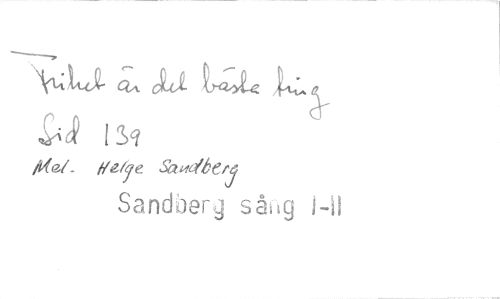 Frihet är det bästa ting
Sid 139
Mel. Helge Sandberg
Sandberg sång I-II